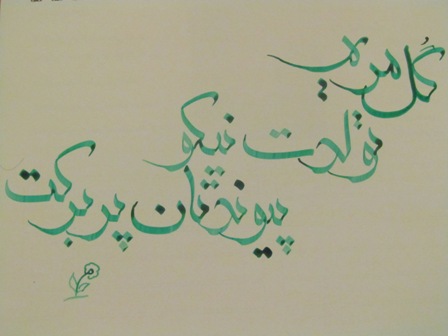 گُل مریم
تولدت نیکو
پیوندتان پر برکت